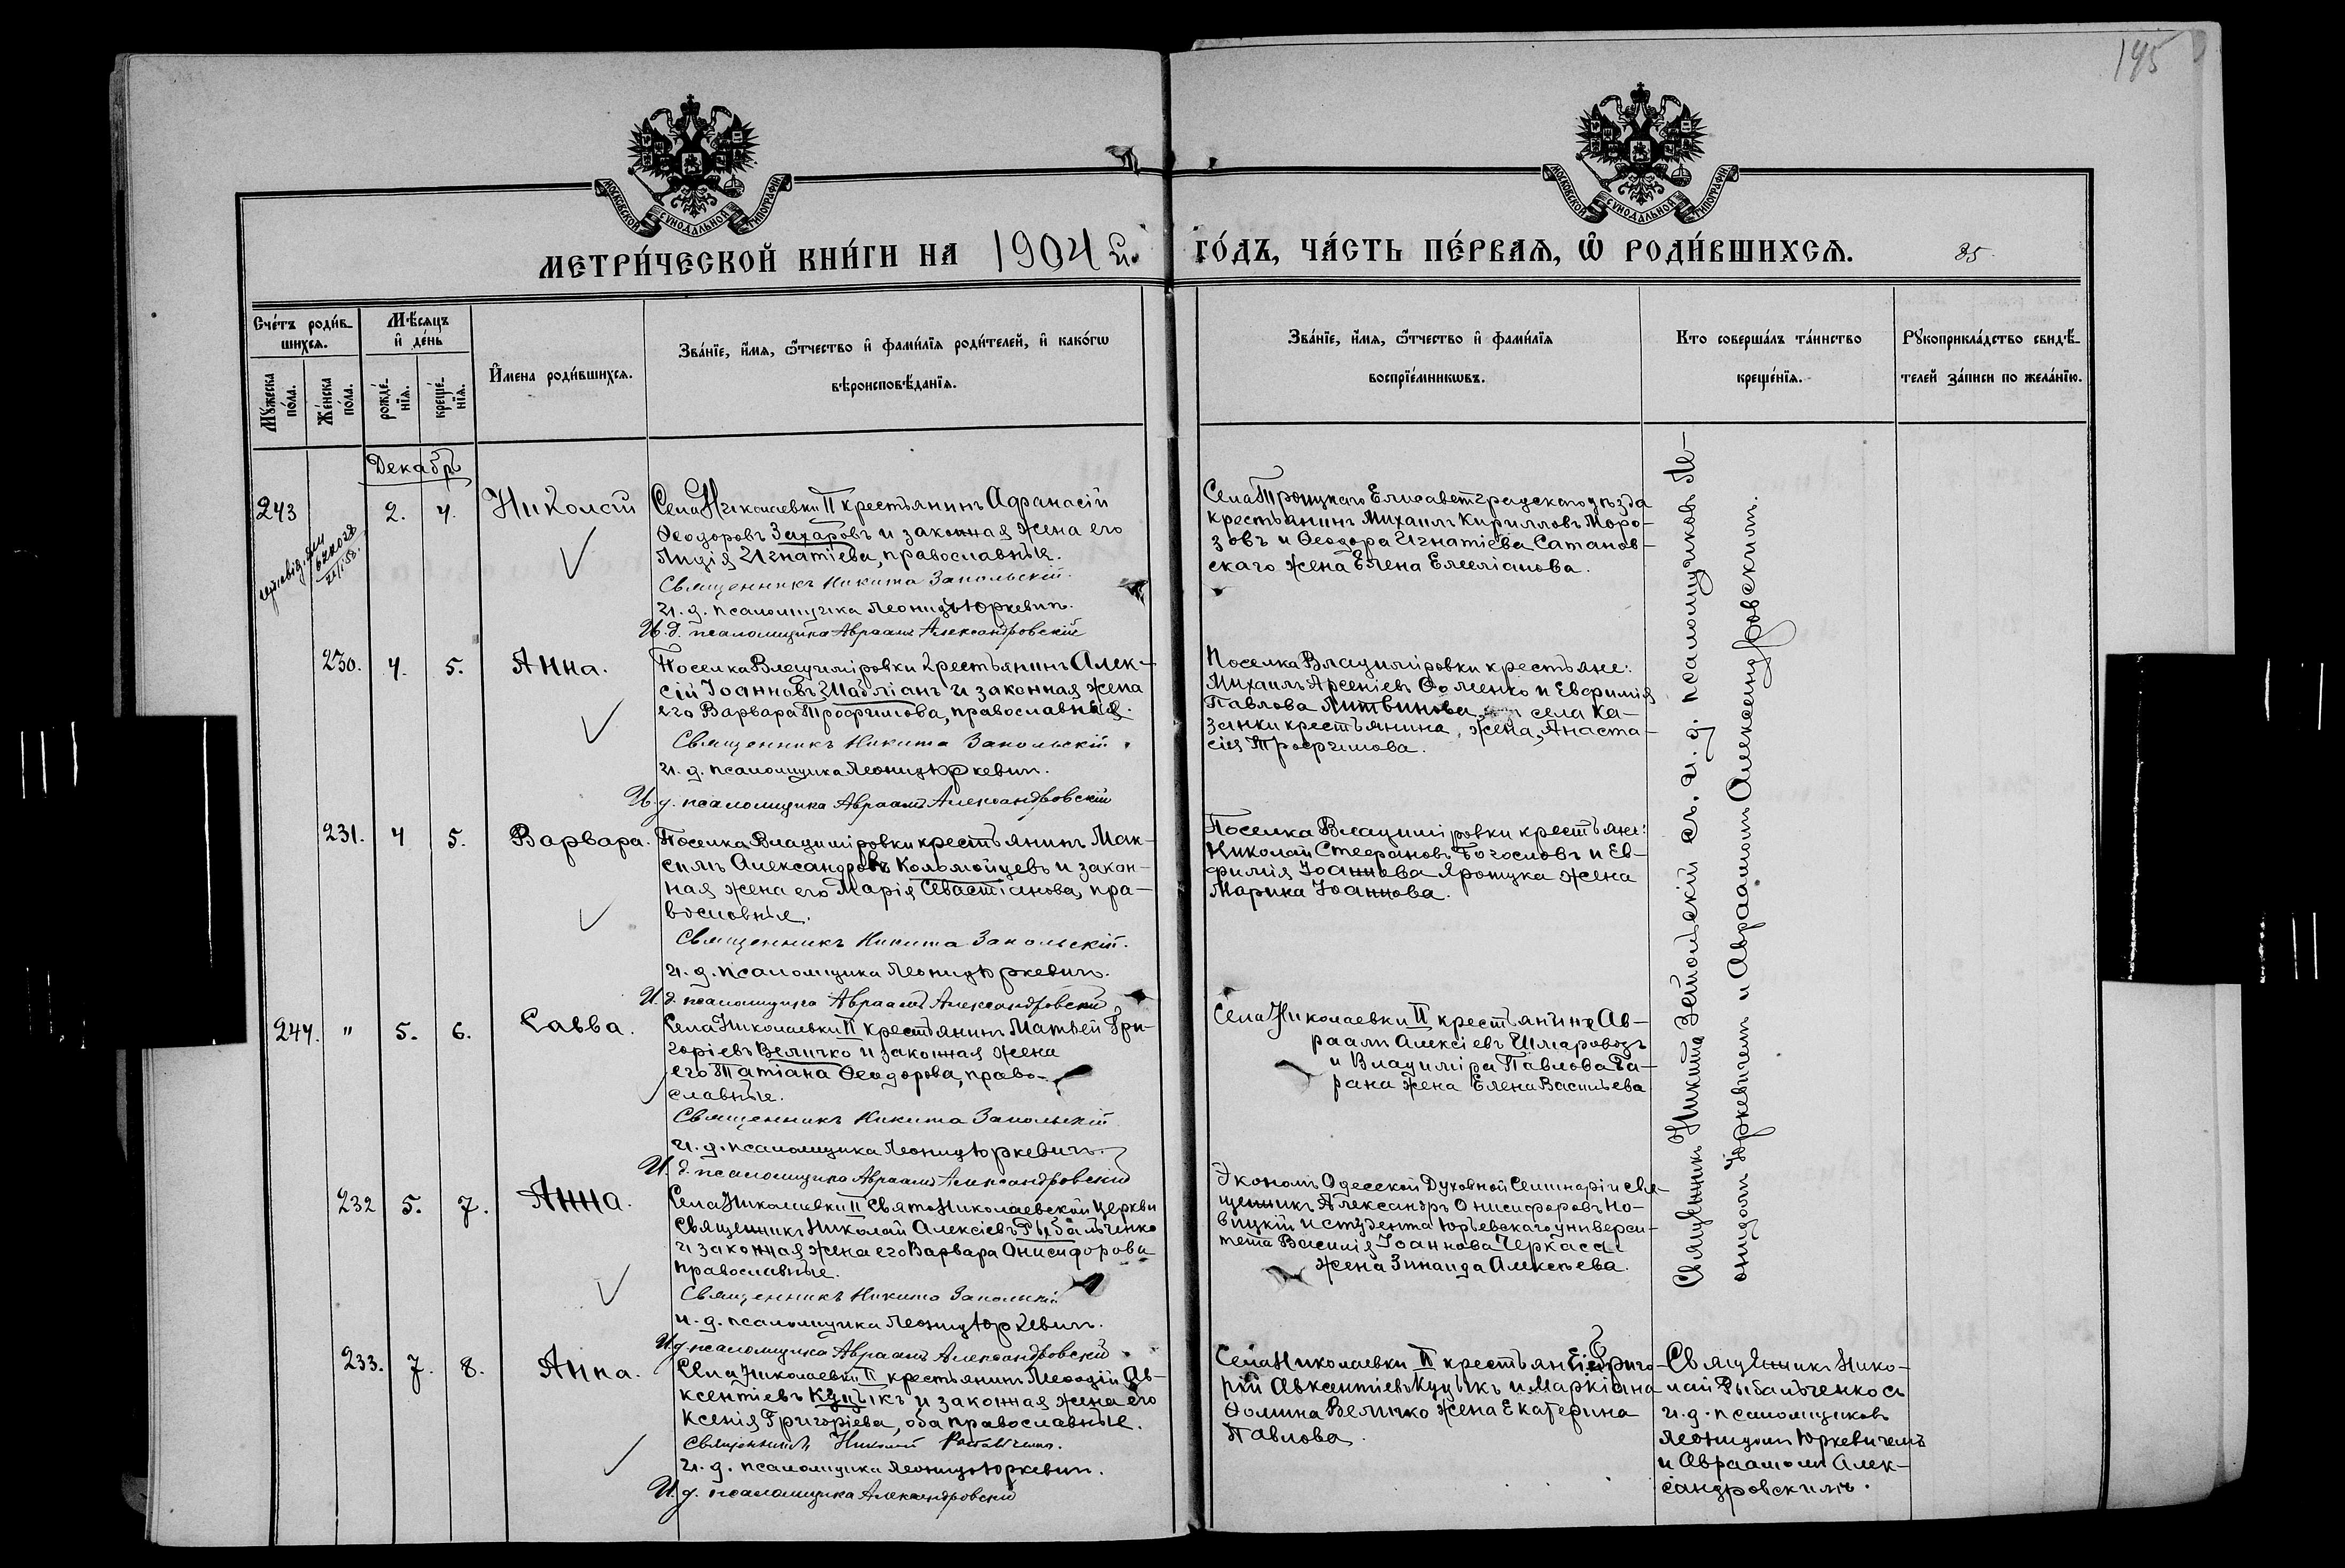 145
МОСКОВСКОЙ СѴНОДАЛЬНОЙ ТИПОГРАФІИ
МОСКОВСКОЙ СѴНОДАЛЬНОЙ ТИПОГРАФІИ
МЕТРИ́ЧЕСКОЙ КНИ́ГИ НА 1904 г.
ГО́ДЪ, ЧА́СТЬ ПЕ́РВАЯ, Ѡ҆ РОДИ́ВШИХСЯ.
35.
Сче́тъ роди́в-
шихся.
Мꙋ́жеска
по́ла.
Же́нска
по́ла.
Мѣ́сяцъ
и҆ де́нь
рожде́-
нїя.
креще́-
нїя.
И҆мена роди́вшихся.
Зва́нїе, и҆́мя, ѻ҆́тчество и҆ фами́лїя роди́телей, и҆ како́гѡ
вѣроисповѣ́данїя.
Зва́нїе, и҆́мя, ѻ҆́тчество и҆ фами́лїя
воспрїе́мникѡвъ.
Кто соверша́лъ та́инство
креще́нїя.
Рꙋкоприкла́дство свидѣ́-
телей за́писи по жела́нїю.
Декабрь
243
2. 4.
Николай
Села Николаевки II крестьянинъ Афанасій
Ѳеодоровъ Захаровъ и законная жена его
Лидія Игнатіева, православные.
Священникъ Никита Запольскій.
И. д. псаломщика Леонидъ Юркевичъ.
И. д. псаломщика Авраамъ Александровскій
Села Троицкаго Елисаветградскаго уѣзда
крестьянинъ Михаилъ Кирилловъ Моро-
зовъ и Ѳеодора Игнатіева Сатанов-
скаго жена Елена Емеліанова.
230. 4. 5.
Анна.
Поселка Владиміровки крестьянинъ Алек-
сій Іоанновъ Шабліанъ и законная жена
его Варвара Трофимова, православные.
Священникъ Никита Запольскій.
И. д. псаломщика Леонидъ Юркевичъ.
И. д. псаломщика Авраамъ Александровскій
Поселка Владиміровки крестьяне:
Михаилъ Арсеніевъ Ѳоменко и Евфимія
Павлова Литвинова, села Ка-
занки крестьянина, жена, Анаста-
сія Трофимова.
231. 4 5.
Варвара.
Поселка Владиміровки крестьянинъ Мак-
симъ Александровъ Коломойцевъ и закон-
ная жена его Марія Севастіанова, пра-
вославные.
Священникъ Никита Запольскій.
И. д. псаломщика Леонидъ Юркевичъ.
И. д. псаломщика Авраамъ Александровскій
Поселка Владиміровки крестьяне:
Николай Стефановъ Богословъ и Ев-
фимія Іоаннова Яротука жена
Марика Іоаннова.
244. " 5. 6.
Савва.
Села Николаевки II крестьянинъ Матвей Гри-
горіевъ Величко и законная жена
его Татіана Ѳеодорова, право-
славные.
Священникъ Никита Запольскій
И. д. псаломщика Леонидъ Юркевичъ.
И. д. псаломщика Авраамъ Александровскій
Села Николаевки II крестьянинъ Ав-
раамъ Алексіевъ Шмаровозъ
и Владиміра Павлова Та-
рана жена Елена Васильева
232 5. 7.
Анна.
Села Николаевки II Свято Николаевской Церкви
Священникъ Николай Алексіевъ Рыбальченко
и законная жена его Варвара Онисифорова
православные.
Священникъ Никита Запольскій
И. д. псаломщика Леонидъ Юркевичъ.
И. д. псаломщика Авраамъ Александровскій
Экономъ Одесской Духовной Семинаріи свя-
щенникъ Александръ Онисифоровъ Но-
вицкій и студента Юрьевскаго универси-
тета Василія Іоаннова Черкаса
жена Зинаида Алексѣева.
Священникъ Никита Запольскій съ и. д. псаломщиковъ Ле-
онидомъ Юркевичемъ и Авраамомъ Александровскимъ.
233. 7. 8.
Анна.
Села Николаевки II крестьянинъ Меѳодій Ав-
ксентіевъ Куцыкъ и законная жена его
Ксенія Григоріева, оба православные.
Священникъ Николай Рыбальченко.
И. д. псаломщика Леонидъ Юркевичъ.
И. д. псаломщика Александровскій
Села Николаевки II крестьяне Григо-
рій Авксентіевъ Куцыкъ и Маркіана
Ѳомина Величко жена Екатерина
Павлова.
Священникъ Нико-
лай Рыбальченко съ
и. д. псаломщиковъ
Леонидомъ Юркевичемъ
и Авраамомъ Алек-
сандровскимъ.